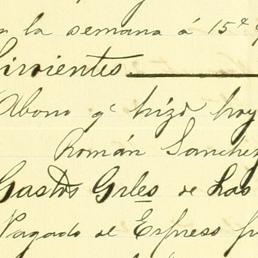 la semana á 15 c/
Sirvientes
Abono q^e hizo hoy
Román Sanchez
Gastos Grles de Las
Pagado al Express